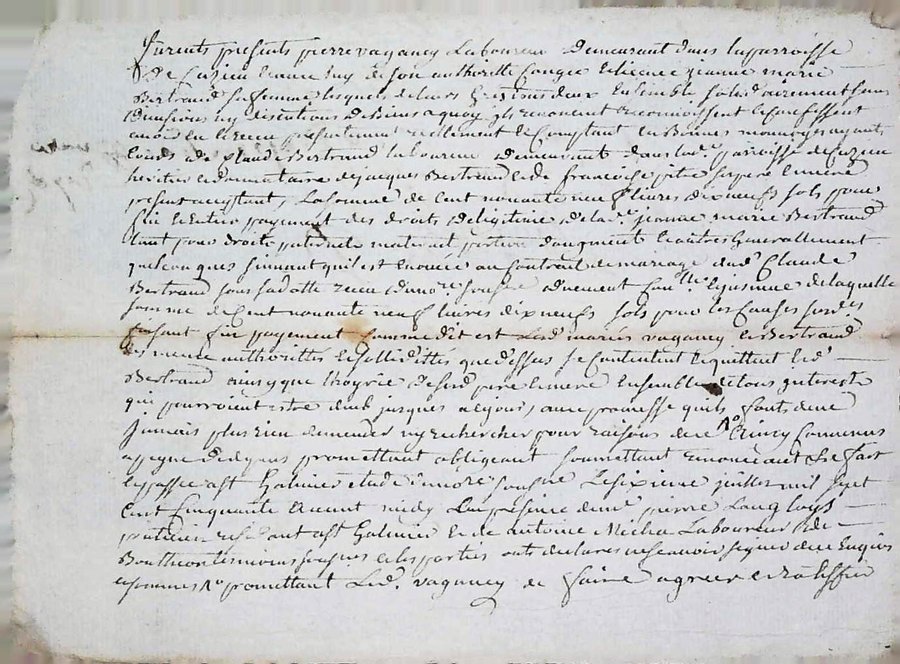 furents presents pierre vagancy Laboureur demeurant dans la parroisse
De Cuzieu lequel luy de son authoritte Congée et licence jeanne marie
Bertrand sa femme lesquels de leurs grés tous deux Ensemble solidairement sans
division ny discutions des biens aquoy ils renoncent reconnoissent et confessent
avoir eu et receu presentement reellement et Comptant en Bonnes monnoyes ayant
Cours de Claude Bertrand laboureur demeurant dans lad. parroisse de Cuzieu
heritier de jacques Bertrand et de francoise ses pere et mere
present acceptant, La somme de Cent nonante neuf livres dix neufs sols pour
fin et Entier payement des droits de legitime de lad. jeanne marie Bertrand
tant pour droits paternels maternel portion d'augment et autres Generallement
quelconques suivant qu'il est Enoncé au Contrait de mariage dud. Claude
Bertrand sous sa datte receu
somme de Cent nonante neuf livres dix neufs sols pour les Causes susd.es
faisant fin payement Comme dit est Lesd. mariés vagancy et Bertrand
es mesme authorittés et sollidittés que dessus se Contentent et quittent led.
Bertrand ainsy que l'hoyrie de sesd. pere et mere Ensemble de tous interests
qui pourroient estre deub jusques a ce jour, avec promesse qu'ils font de ne
jamais plus rien demander ny rechercher pour raisons de ce Ainsy Convenus
a peyne de depens promettant obligeant soumettant renonceant &c fait
et passé a st Galmier etude du no.re sousne Le sixieme juillet mil sept
Cent Cinquante avant midy En presence de mr pierre Langloys
praticien residant a st Galmier et de antoine Michel Laboureur de
Bonthcon temoins et les parties ont declarés ne scavoir signer de ce Enquis
et sommés promettant Led. vagancy de faire agreer et ratiffier